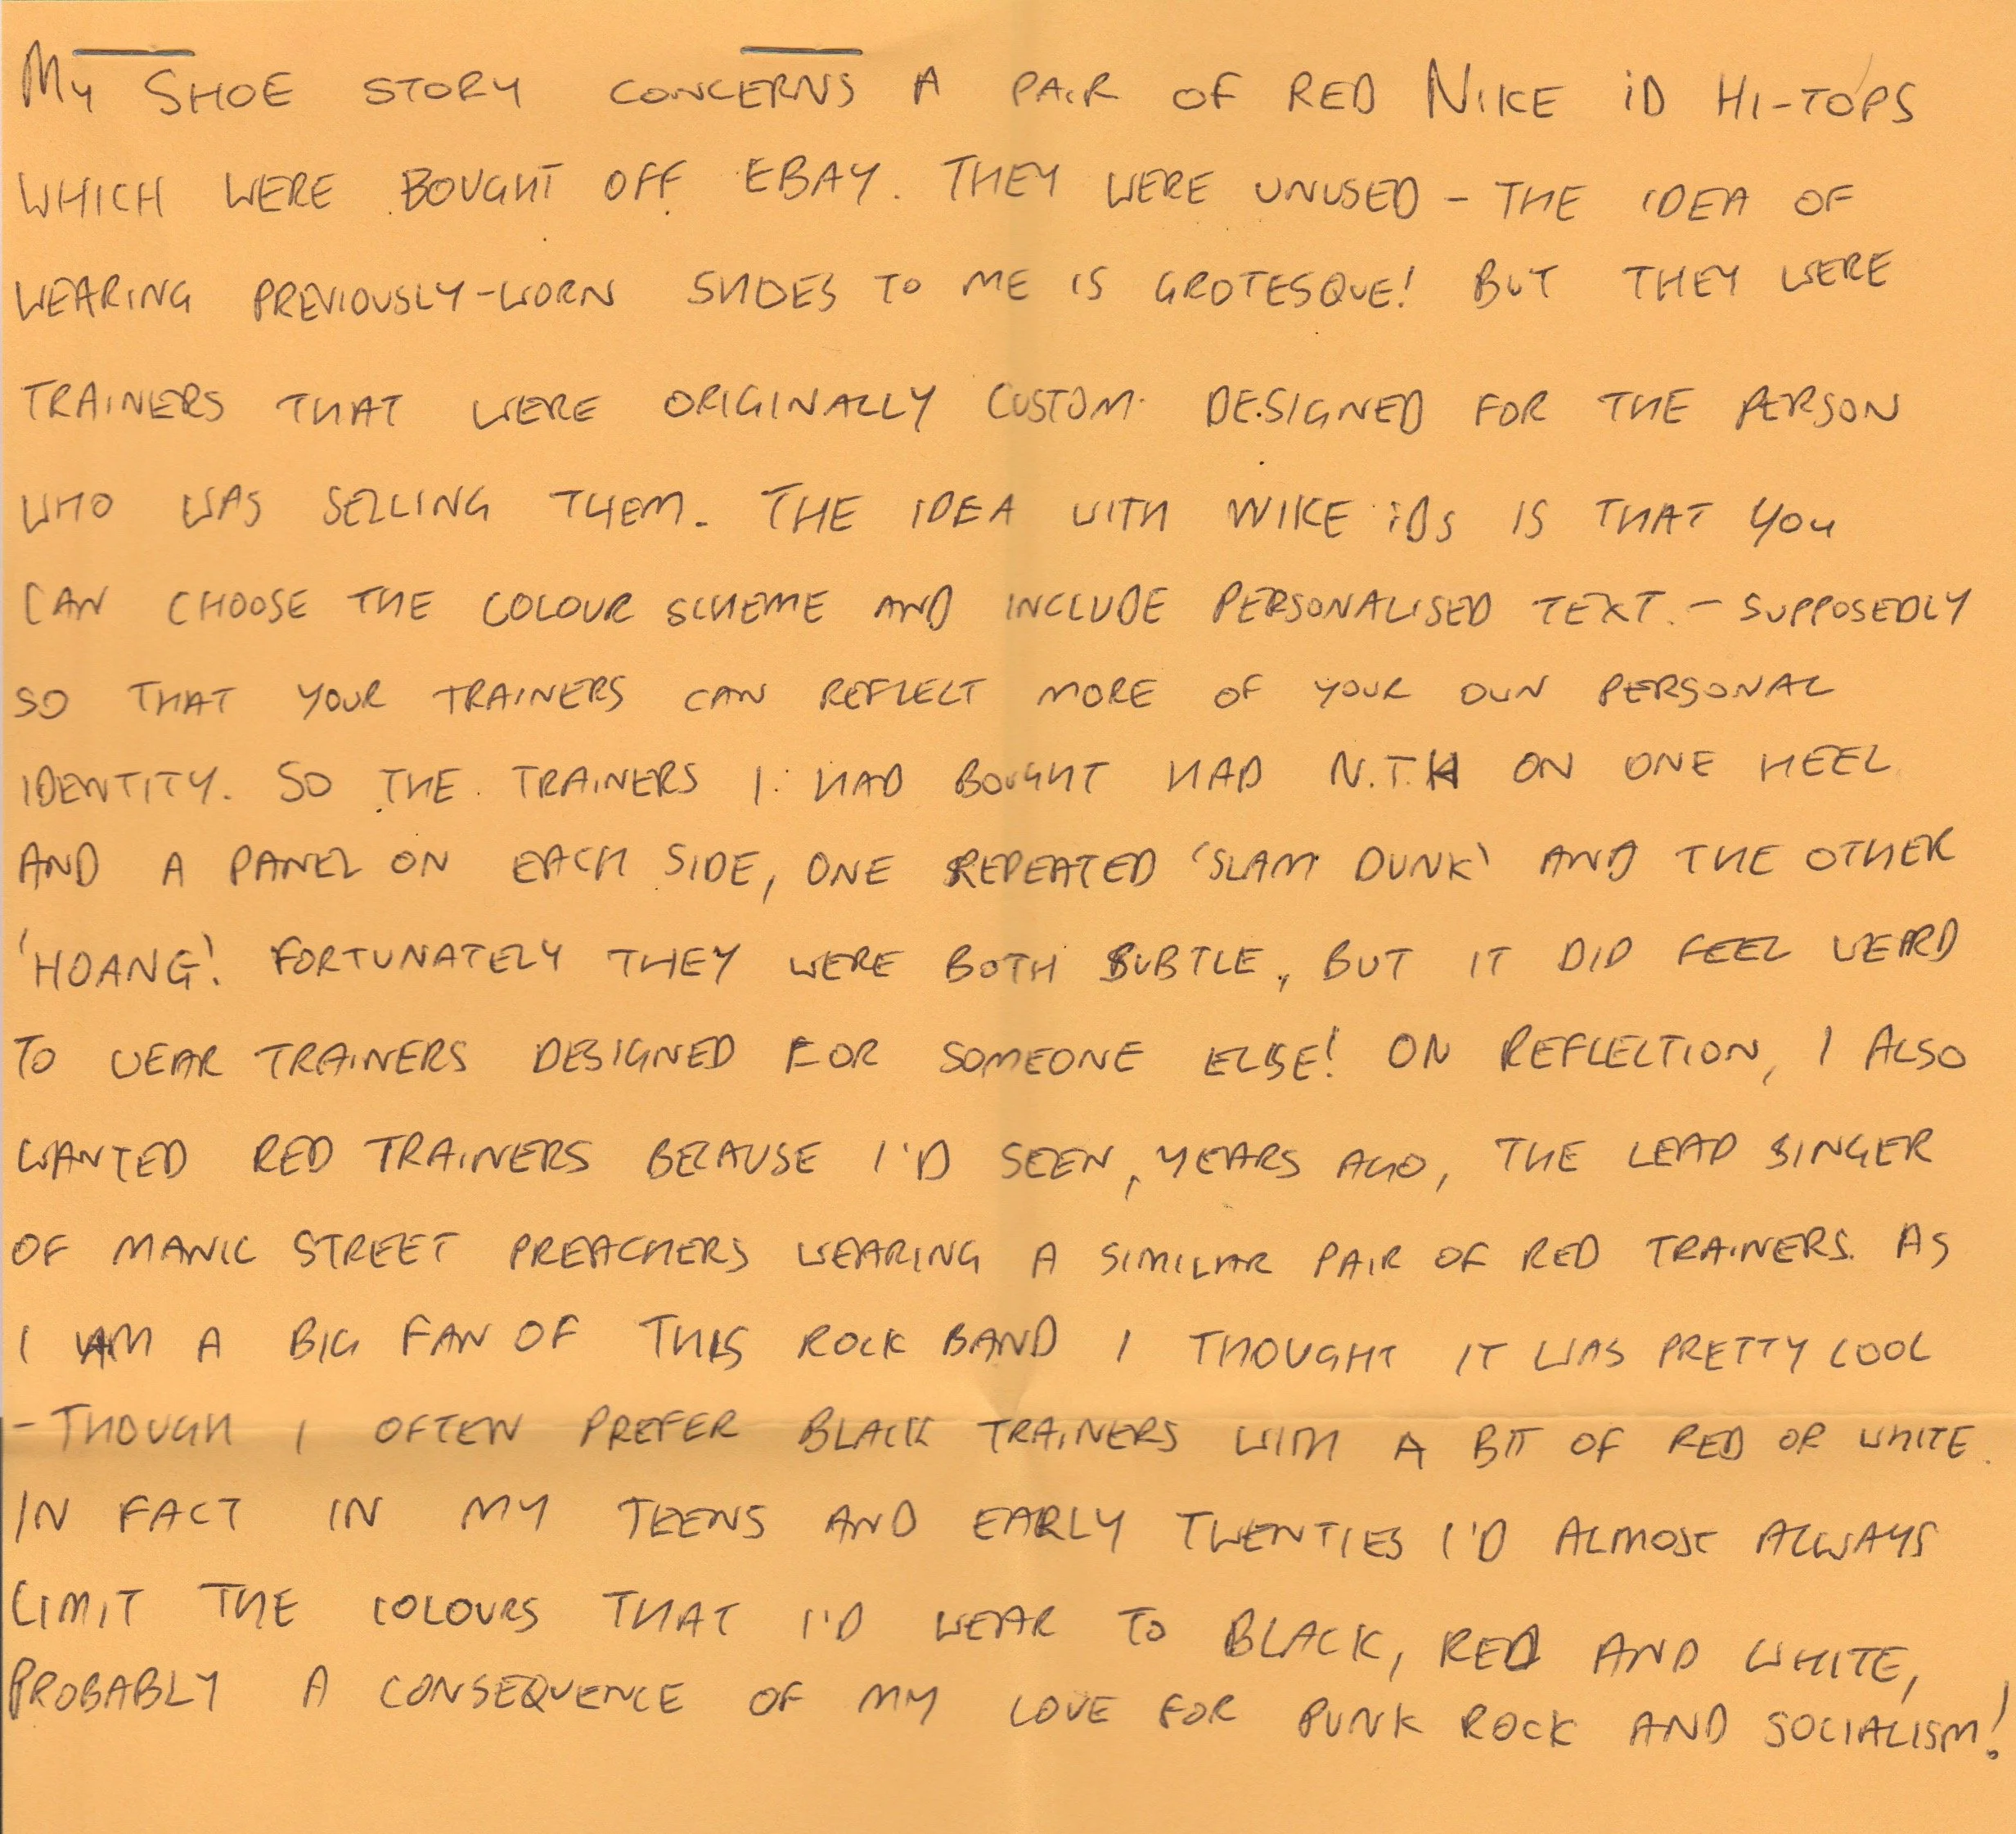 My SHOE STORY CONCERNS A PAIR OF RED NIKE iD HI-TOPS
WHICH WERE BOUGHT OFF EBAY. THEY WERE UNUSED - THE IDEA OF
WEARING PREVIOUSLY-WORN SHOES TO ME IS GROTESQUE! BUT THEY WERE
TRAINERS THAT WERE ORIGINALLY CUSTOM DESIGNED FOR THE PERSON
WHO WAS SELLING THEM. THE IDEA WITH NIKE iDs IS THAT YOU
CAN CHOOSE THE COLOUR SCHEME AND INCLUDE PERSONALISED TEXT. - SUPPOSEDLY
SO THAT YOUR TRAINERS CAN REFLECT MORE OF YOUR OWN PERSONAL
IDENTITY. SO THE TRAINERS I HAD BOUGHT HAD N.T.H ON ONE HEEL
AND A PANEL ON EACH SIDE, ONE REPEATED 'SLAM DUNK' AND THE OTHER
'HOANG'. FORTUNATELY THEY WERE BOTH SUBTLE, BUT IT DID FEEL WEARD
TO WEAR TRAINERS DESIGNED FOR SOMEONE ELSE! ON REFLECTION, I ALSO
WANTED RED TRAINERS BECAUSE I'D SEEN, YEARS AGO, THE LEAD SINGER
OF MANIC STREET PREACHERS WEARING A SIMILAR PAIR OF RED TRAINERS. AS
I AM A BIG FAN OF THIS ROCK BAND I THOUGHT IT WAS PRETTY COOL
- THOUGH I OFTEN PREFER BLACK TRAINERS WITH A BIT OF RED OR WHITE.
IN FACT IN MY TEENS AND EARLY TWENTIES I'D ALMOST ALWAYS
LIMIT THE COLOURS THAT I'D WEAR TO BLACK, RED AND WHITE,
PROBABLY A CONSEQUENCE OF MY LOVE FOR PUNK ROCK AND SOCIALISM!